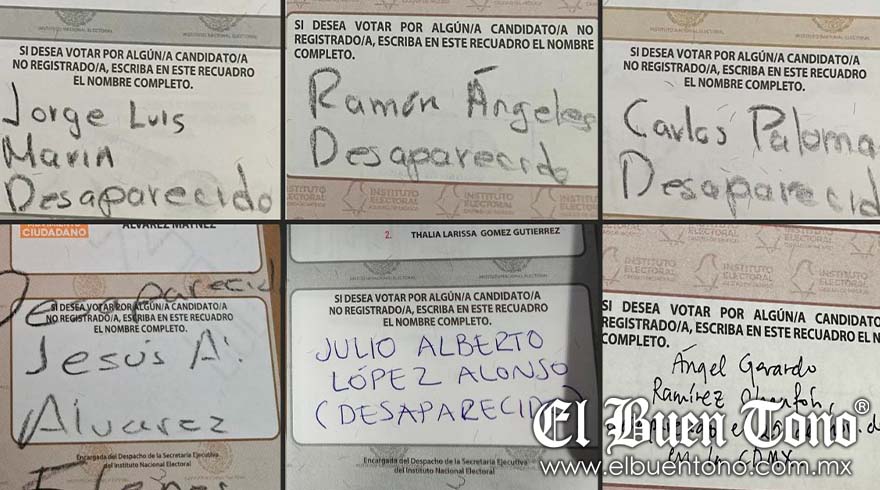 INSTITUTO NACIONAL ELECTORAL
SI DESEA VOTAR POR ALGÚN/A CANDIDATO/A
NO REGISTRADO/A, ESCRIBA EN ESTE RECUADRO
EL NOMBRE COMPLETO.
Jorge Luis
Marin
Desaparecido
SI DESEA VOTAR POR ALGÚN/A CANDIDATO/A NO
REGISTRADO/A, ESCRIBA EN ESTE RECUADRO EL NOMBRE
COMPLETO.
Ramón Ángeles
Desaparecido
INSTITUTO
ELECTORAL
INSTITUTO
ELECTORAL
INSTITUTO
ELECTORAL
SI DESEA VOTAR POR ALGÚN/A CANDIDATO/A
NO REGISTRADO/A, ESCRIBA EN ESTE RECUADRO
EL NOMBRE COMPLETO.
Carlos Paloma
Desaparecid
MOVIMIENTO
CIUDADANO
ÁLVAREZ MÁYNEZ
SI DESEA VOTAR POR ALGÚN/A CANDIDATO/A
NO REGISTRADO/A, ESCRIBA EN ESTE RECUADRO
EL NOMBRE COMPLETO.
Jesús A.
Alvarez
Encargada del Despacho de la Secretaría Ejecutiva
del Instituto Nacional Electoral
2. THALIA LARISSA GOMEZ GUTIERREZ
SI DESEA VOTAR POR ALGÚN/A CANDIDATO/A
NO REGISTRADO/A, ESCRIBA EN ESTE RECUADRO
EL NOMBRE COMPLETO.
JULIO ALBERTO
LÓPEZ ALONSO
(DESAPARECIDO)
Encargada del Despacho de la Secretaría Ejecutiva
del Instituto Nacional Electoral
INSTITUTO
ELECTORAL
INSTITUTO
ELECTORAL
SI DESEA VOTAR POR ALGÚN/A CANDIDATO
REGISTRADO/A, ESCRIBA EN ESTE RECUADRO EL N
COMPLETO.
Ángel Gerardo
Ramírez
en la CDMX
El Buen Tono®
www.elbuentono.com.mx